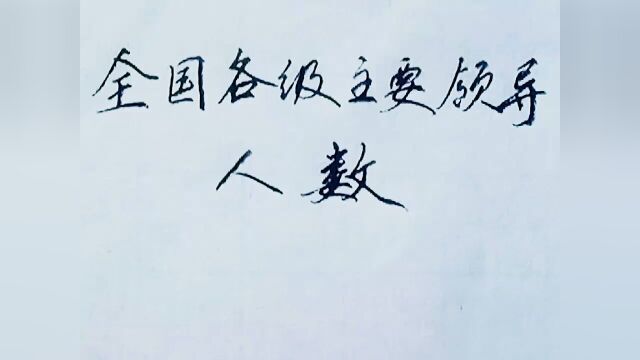 全国各级主要领导
人数